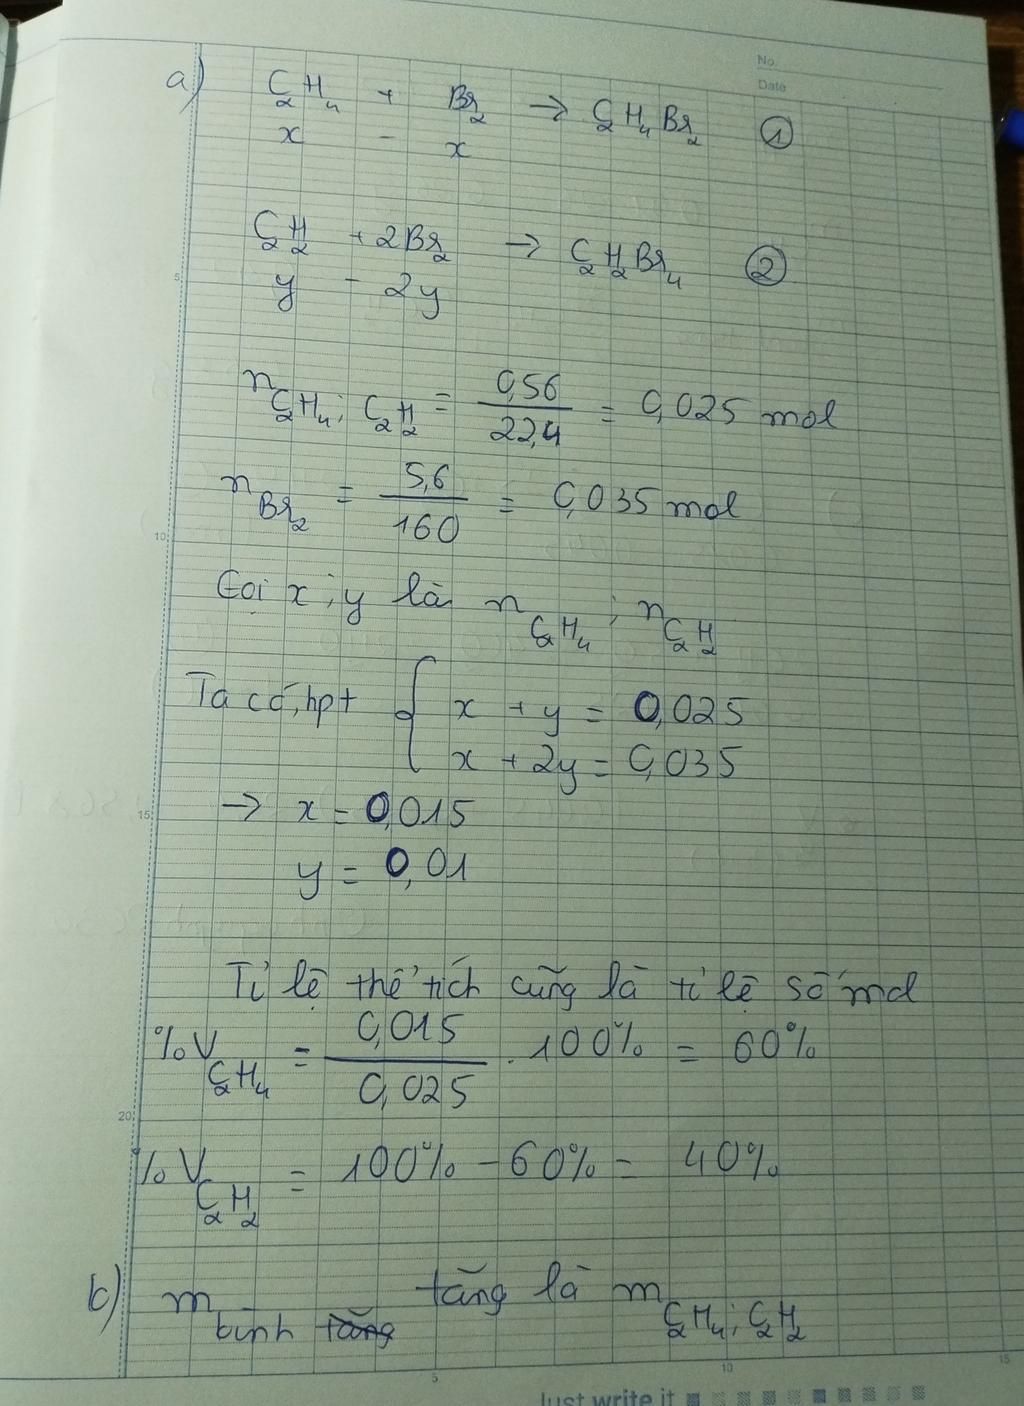 No.
Date
a) C2H4 + Br2 → C2H4Br2 ①
x - x
C2H2 + 2Br2 → C2H2Br4 ②
y - 2y
n C2H4; C2H2 = 0,56/22,4 = 0,025 mol
n Br2 = 5,6/160 = 0,035 mol
Gọi x; y là n C2H4; n C2H2
Ta có, hpt { x + y = 0,025
x + 2y = 0,035
→ x = 0,015
y = 0,01
Tỉ lệ thể tích cũng là tỉ lệ số mol
%V C2H4 = 0,015/0,025 . 100% = 60%
%V C2H2 = 100% - 60% = 40%
b) m bình tăng tăng là m C2H4; C2H2
5
10
15
20
5
10
15
Just write it